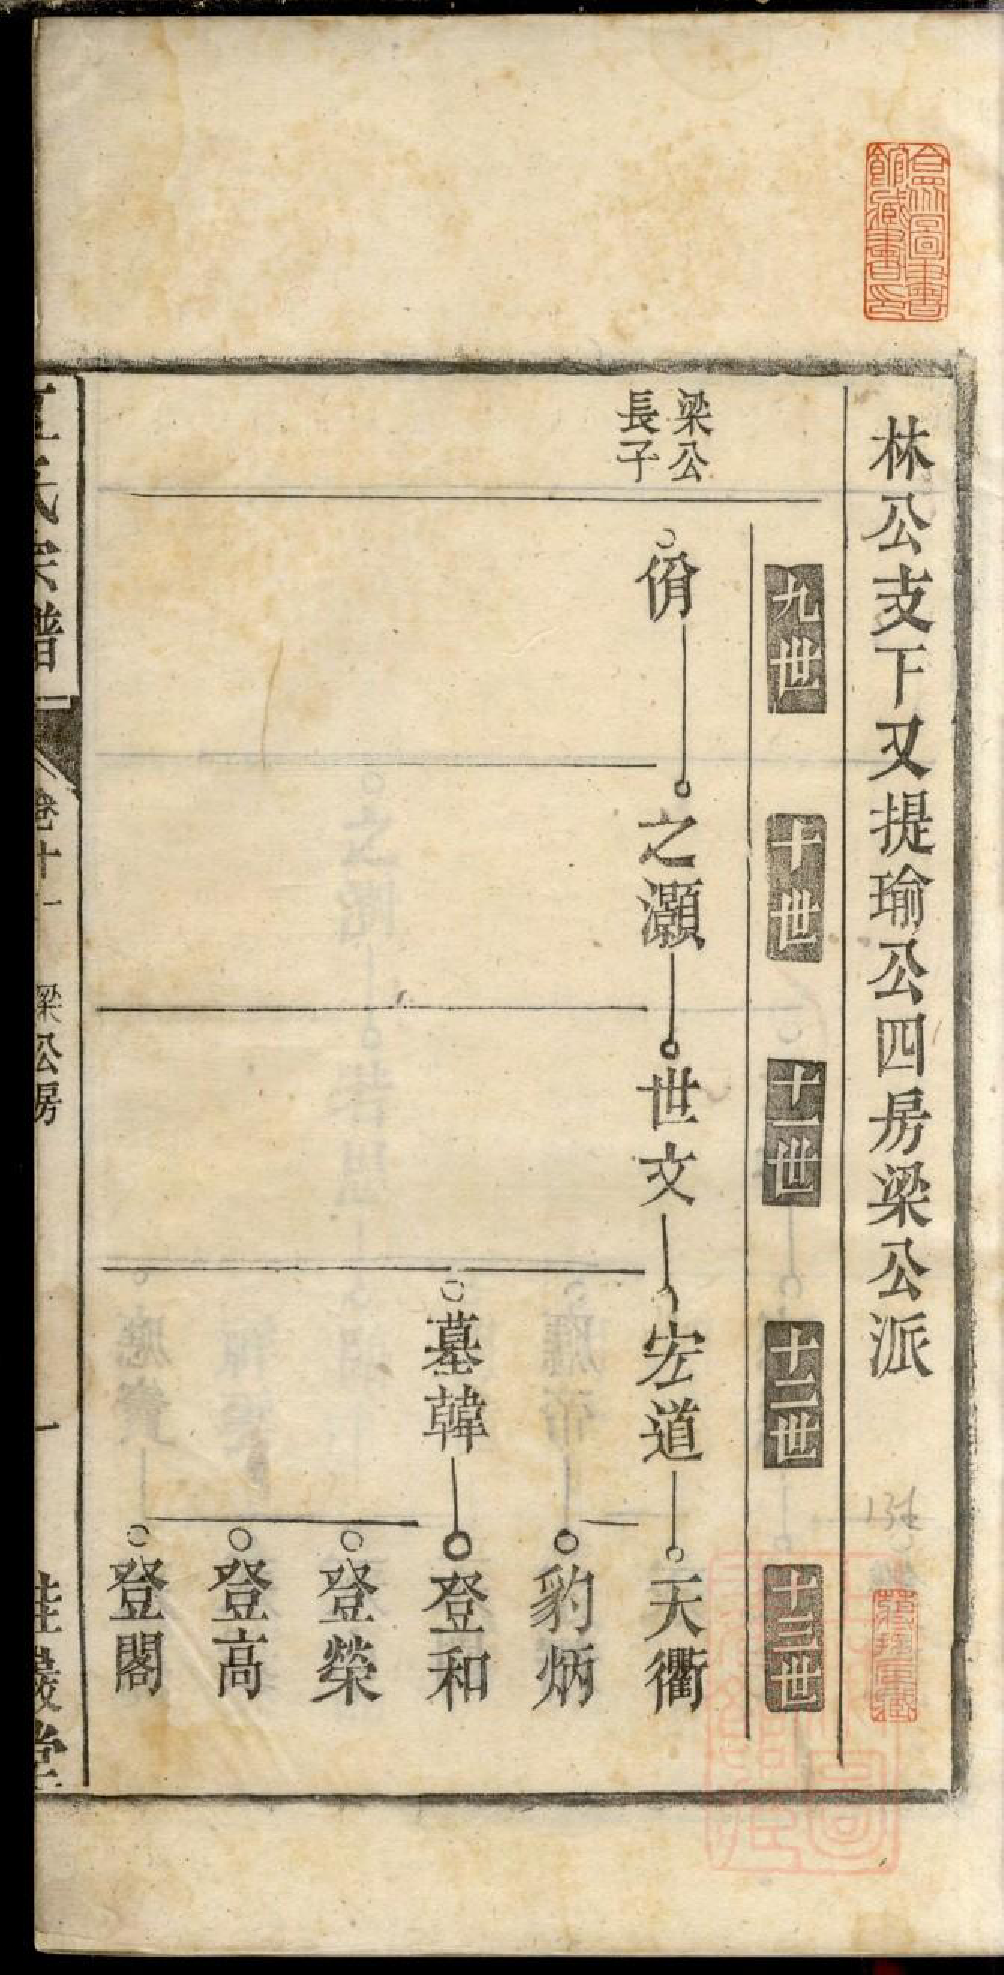 林公支下又提瑜公四房梁公派
九世
十世
十一世
十二世
十三世
梁公
長子
之灝
世文
宏道
天衢
豹炳
墓韓
登和
登榮
登高
登閣
氏宗譜
卷十一
梁公房
一